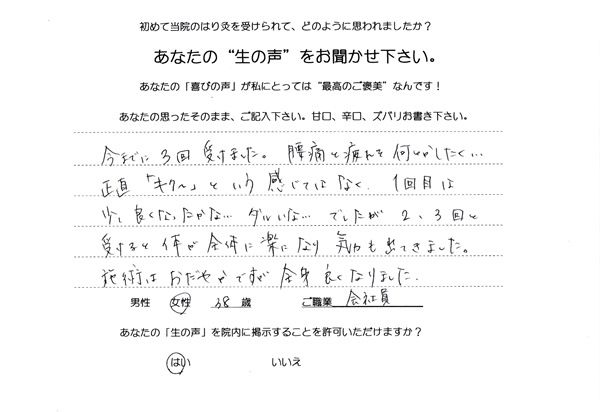 初めて当院のはり灸を受けられて、どのように思われましたか?
あなたの“生の声”をお聞かせ下さい。
あなたの「喜びの声」が私にとっては“最高のご褒美”なんです!
あなたの思ったそのまま、ご記入下さい。甘口、辛口、ズバリお書き下さい。
今までに3回受けました。腰痛と疲れを何とかしたく…
正直「キク~」という感じではなく、1回目は
少し良くなったかな…ダルいな…でしたが2、3回と
受けると体が全体に楽になり気力も出てきました。
施術はおだやかですが全身良くなりました。
男性 女性 38 歳 ご職業 会社員
あなたの「生の声」を院内に掲示することを許可いただけますか?
はい いいえ